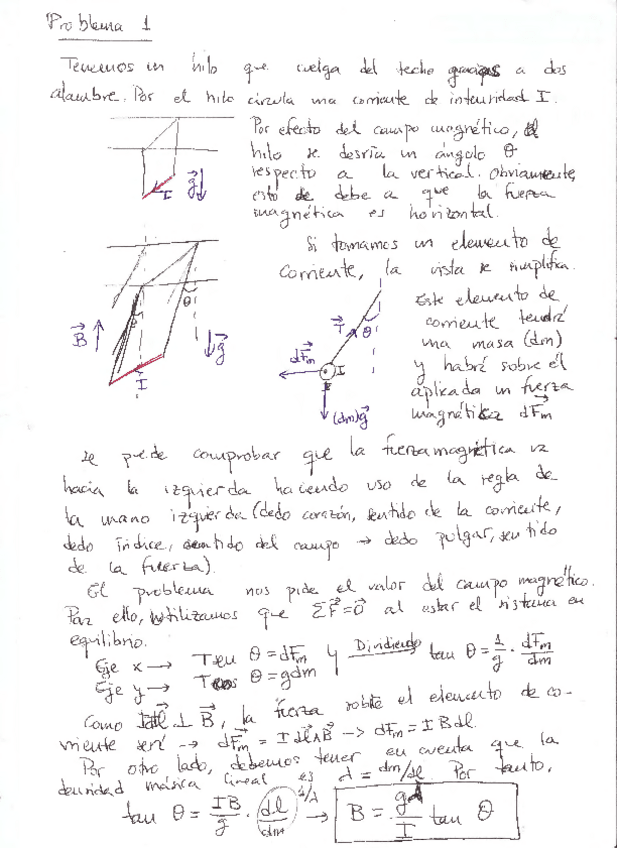 Problema 1
Tenemos un hilo que cuelga del techo gracias a dos
alambre. Por el hilo circula una corriente de intensidad I.
Por efecto del campo magnético, el
hilo se desvía un ángulo θ
respecto a la vertical. Obviamente,
esto se debe a que la fuerza
magnética es horizontal.
I
g
Si tomamos un elemento de
corriente, la vista se simplifica.
Este elemento de
corriente tendrá
una masa (dm)
y habrá sobre él
aplicada un fuerza
magnética dF⃗m
B⃗
θ
I
g⃗
T⃗
θ
dF⃗m
I
(dm)g⃗
Se puede comprobar que la fuerza magnética va
hacia la izquierda haciendo uso de la regla de
la mano izquierda (dedo corazón, sentido de la corriente,
dedo índice, sentido del campo → dedo pulgar, sentido
de la fuerza).
El problema nos pide el valor del campo magnético.
Para ello, utilizamos que ΣF⃗=0⃗ al estar el sistema en
equilibrio.
Eje x → T sen θ = dFm y Dividiendo tan θ = 1/g · dFm/dm
Eje y → T cos θ = g dm
Como Idl⃗ ⊥ B⃗, la fuerza sobre el elemento de co-
rriente será → dF⃗m = I dl⃗∧B⃗ → dFm = I B dl.
Por otro lado, debemos tener en cuenta que la
densidad másica lineal es d = dm/dl Por tanto,
tan θ = IB/g · (dl/dm) 1/d → B = gd/I tan θ